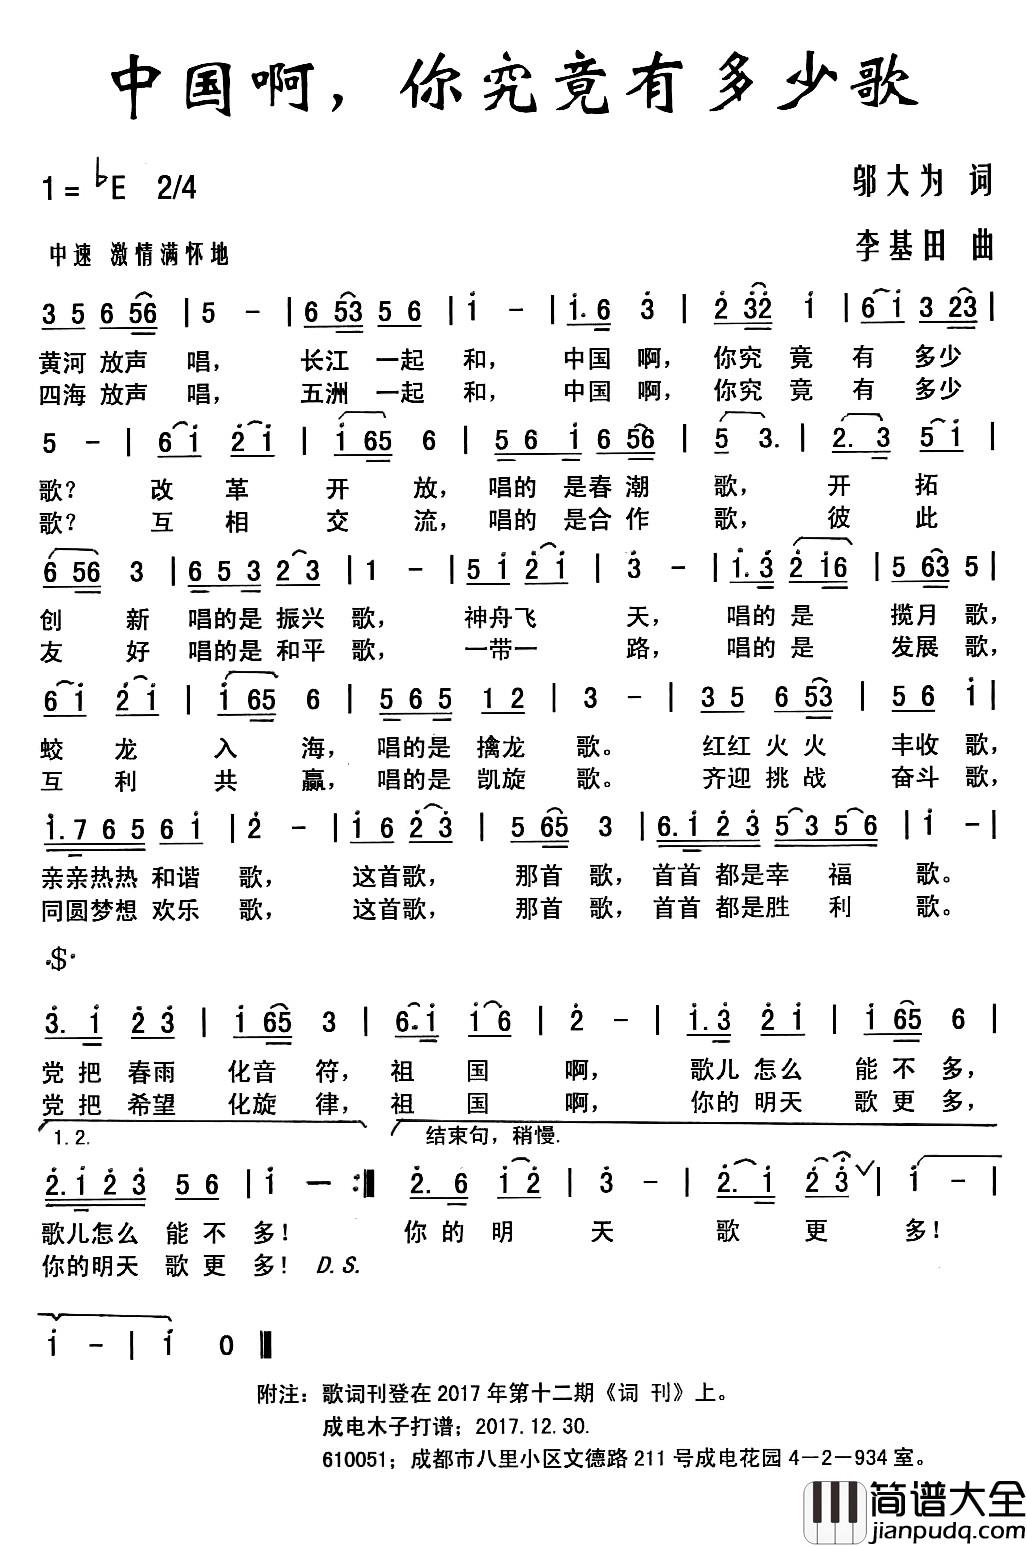 中国啊，你究竟有多少歌
1=♭E 2/4
邬大为 词
中速 激情满怀地
李基田 曲
3 5 6 56 | 5 - | 6 53 5 6 | 1 - | 1. 6 3 | 2 32 1 | 6 1 3 23 |
黄河 放声 唱， 长江 一起 和， 中国 啊， 你究 竟 有 多少
四海 放声 唱， 五洲 一起 和， 中国 啊， 你究 竟 有 多少
5 - | 6 1 2 1 | 1 65 6 | 5 6 1 6 56 | 5 3. | 2. 3 5 1 |
歌？ 改 革 开 放， 唱的 是春 潮 歌， 开 拓
歌？ 互 相 交 流， 唱的 是合 作 歌， 彼 此
6 56 3 | 6 5 3 2 3 | 1 - | 5 1 2 1 | 3 - | 1. 3 2 16 | 5 63 5 |
创 新 唱的是 振兴 歌， 神舟飞 天， 唱的 是 揽月 歌，
友 好 唱的是 和平 歌， 一带一 路， 唱的 是 发展 歌，
6 1 2 1 | 1 65 6 | 5 6 5 1 2 | 3 - | 3 5 6 53 | 5 6 1 |
蛟 龙 入 海， 唱的是 擒龙 歌。 红红 火 火 丰收 歌，
互 利 共 赢， 唱的是 凯旋 歌。 齐迎 挑 战 奋斗 歌，
1. 7 6 5 6 1 | 2 - | 1 6 2 3 | 5 65 3 | 6. 1 2 3 5 3 5 6 | 1 - |
亲亲热热 和谐 歌， 这首歌， 那首 歌， 首首 都是幸 福 歌。
同圆梦想 欢乐 歌， 这首歌， 那首 歌， 首首 都是胜 利 歌。
𝄋
3. 1 2 3 | 1 65 3 | 6. 1 1 6 | 2 - | 1. 3 2 1 | 1 65 6 |
党 把 春雨 化音 符， 祖 国 啊， 歌儿 怎么 能 不 多，
党 把 希望 化旋 律， 祖 国 啊， 你的 明天 歌 更 多，
1. 2. 结束句，稍慢.
2. 1 2 3 5 6 | 1 - :‖ 2. 6 1 2 | 3 - | 2. 1 2 3 ∨ | 1 - |
歌儿怎么 能 不 多！ 你 的 明 天 歌 更 多！
你的明天 歌 更 多！ D.S.
1 - | 1 0 ‖
附注：歌词刊登在2017年第十二期《词 刊》上。
成电木子打谱；2017.12.30.
610051；成都市八里小区文德路211号成电花园4－2－934室。
简谱大全
jianpudq.com